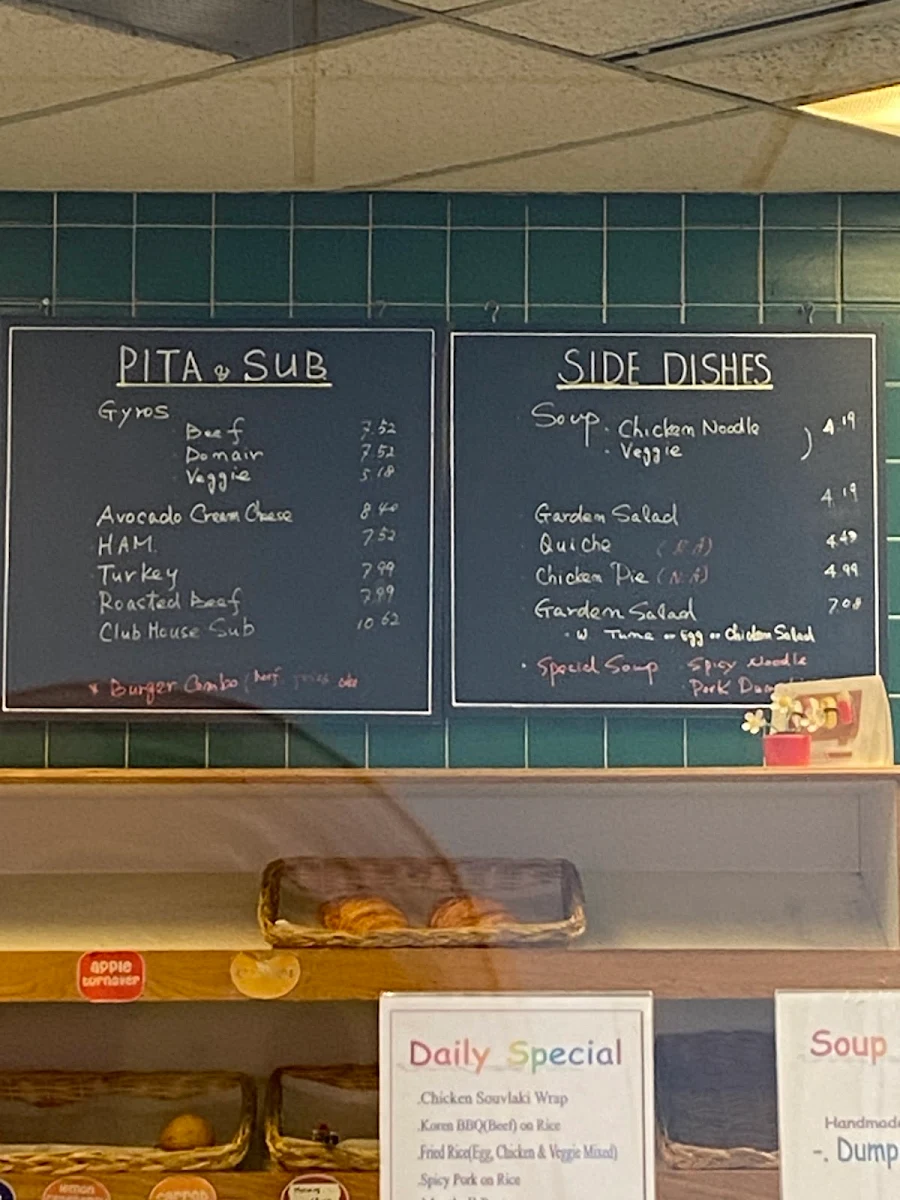 PITA & SUB
Gyros
Beef 7.52
Domair 7.52
Veggie 5.18
Avocado Cream Cheese 8.40
HAM. 7.52
Turkey 7.99
Roasted Beef 7.99
Club House Sub 10.62
* Burger Combo (beef. fries
SIDE DISHES
Soup . Chicken Noodle ) 4.19
. Veggie
4.19
Garden Salad
Quiche (N.A) 4.49
Chicken Pie (N.A) 4.99
Garden Salad 7.08
. W. Tuna or Egg or Chicken Salad
. Special Soup Spicy Noodle
. Pork
apple
turnover
Daily Special
.Chicken Souvlaki Wrap
.Koren BBQ(Beef) on Rice
.Fried Rice(Egg, Chicken & Veggie Mixed)
.Spicy Pork on Rice
Soup
Handmade
-. Dump
lemon